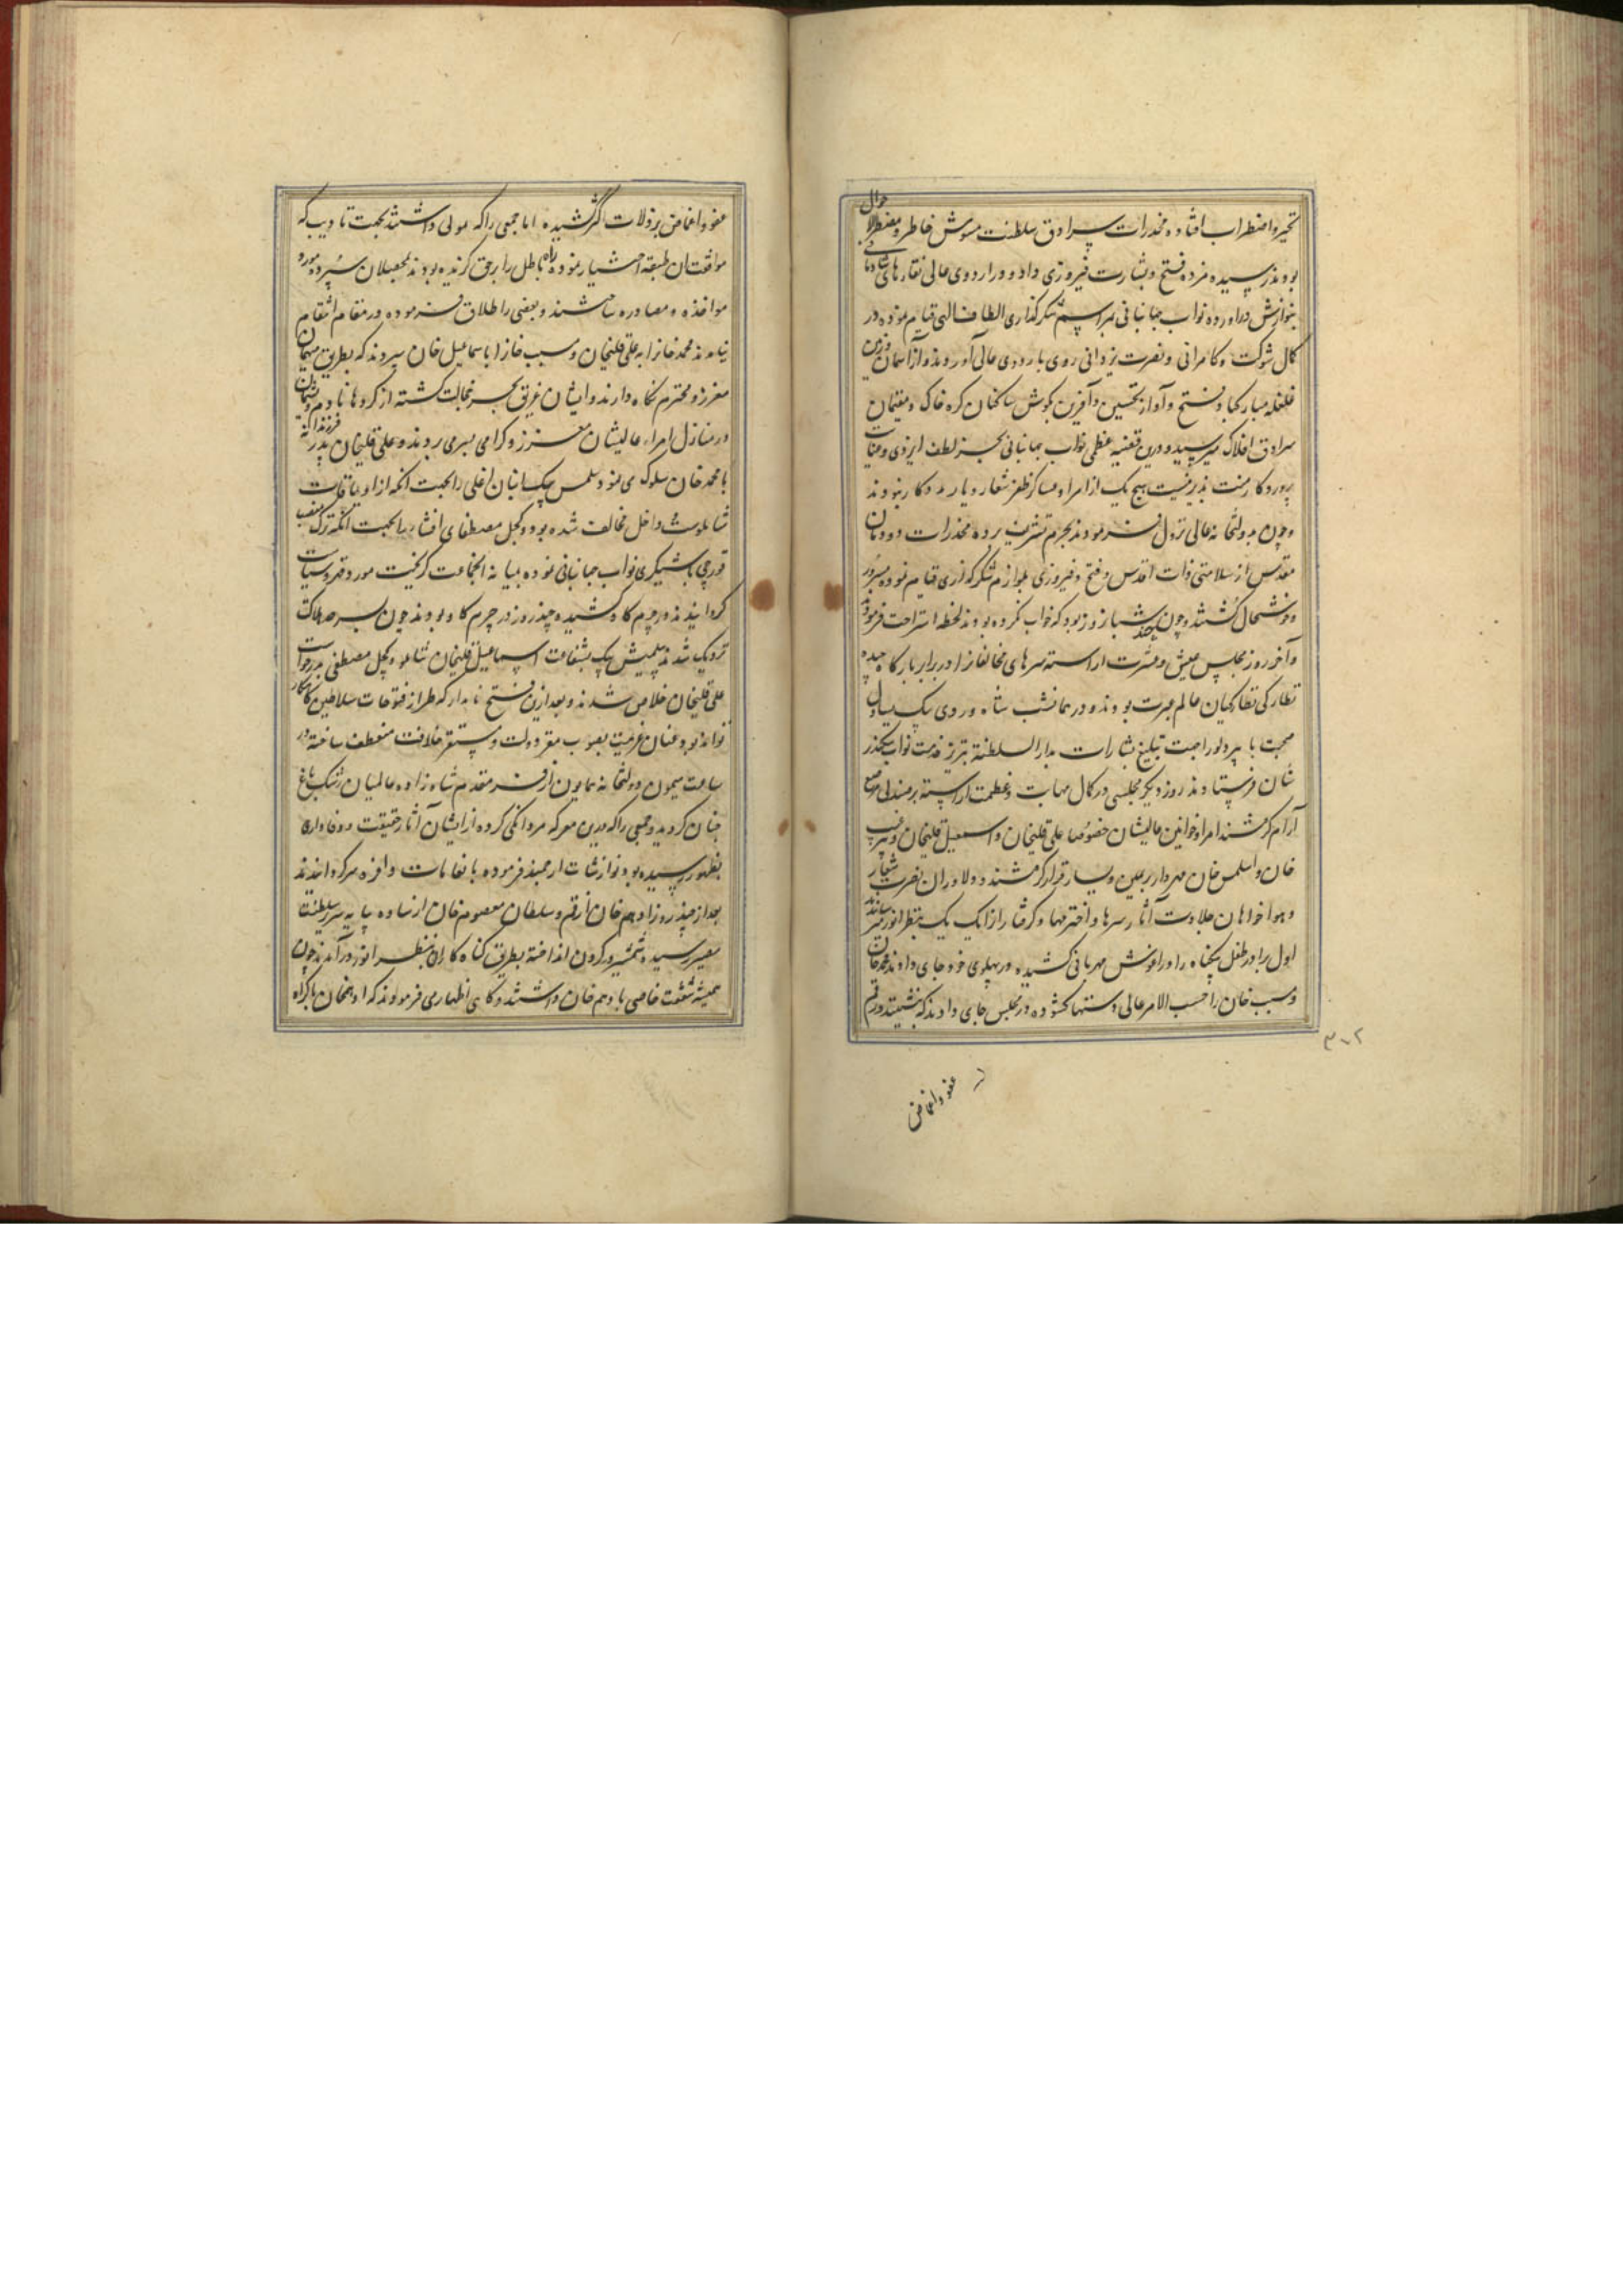 تحیر و اضطراب افتاده مخدرات سرادق سلطنت مشوش خاطر و مضطرب الاحوال
بودند رسیده مژده فتح و بشارت فیروزی داد و در اردوی عالی نقارهای شادمانی
بنوازش درآورده نواب جهانبانی بمراسم شکرگذاری الطاف الهی قیام نموده در
کمال شوکت و کامرانی و نصرت یزدانی روی باردوی عالی آوردند و از آسمان و زمین
غلغله مبارکباد فتح و آواز تحسین و آفرین بگوش ساکنان کره خاک و مقیمان
سرادق افلاک میرسید و درین قضیه عظمی نواب جهانبانی بجز لطف ایزدی و عنایت
پروردگار منت پذیر نیست هیچ یک از امرا و عساکر ظفر شعار و یار مددکار نبودند
و چون بدولتخانه عالی نزول فرمودند بحرم تشریف برده مخدرات دودمان
مقدس از سلامتی ذات اقدس و فتح و فیروزی بلوازم شکرگذاری قیام نموده مسرور
و خوشحال گشتند و چون چند شبانروز بود که خواب نکرده بودند لحظه استراحت فرمودند
و آخر روز مجلس عیش و عشرت آراسته سرهای مخالفانرا در برابر بارگاه چیده
نظارگی نظارگیان عالم عبرت بودند و در همانشب شاه وردی بیک یساول
صحبت با پیر دلو را جهت تبلیغ بشارات بدارالسلطنه تبریز خدمت نواب سکندر
شان فرستادند روز دیگر مجلسی در کمال مهابت و عظمت آراسته بر صندلی مرصع
آرام گرفتند امرا و خوانین عالیشان خصوصا علی قلیخان و اسمعیل قلیخان و پیر غیب
خان و اسلمس خان مهردار بر یمین و یسار قرار گرفتند و دلاوران نصرت شعار
و هواخواهان جلادت آثار سرها و اخترمها و گرفتارانرا یک یک بنظر انور میرساندند
اول برادر طفل بیگناه را در آغوش مهربانی کشیده در پهلوی خود جای دادند محمد خان
و مسیب خان را حسب الامر عالی دستها گشوده در مجلس جای دادند که بنشینند و رقم
۳۰۲
عفو و اغماض
عفو و اغماض بر زلات اکثر کشیده اما جمعی را که مولی داشتند بجهت تادیب که
موافقت آن طبقه اختیار نموده راه باطل را بر حق گزیده بودند بمحصلان سپرده مورد
مواخذه و مصادره ساختند و بعضی را اطلاق فرموده در مقام انتقام
نیامدند محمد خانرا به علی قلیخان و مسیب خانرا باسماعیل خان سپردند که بطریق میهمان
معزز و محترم نگاه دارند و ایشان غریق بحر خجالت گشته از کردها نادم و پشیمان
در منازل امراء عالیشان معزز و گرامی بسر می بردند و علی قلیخان پدر فرزندانه
با محمد خان سلوک می نمود یلمس بیک اینان اغلی را بجهت آنکه از اویماقات
شاملوست و داخل مخالفت شده بود و کچل مصطفای افشار را بجهت آنکه ترک منصب
قورچی باشیگری نواب جهانبانی نموده بمیانه انجماعت گریخت مورد قهر و سیاست
گردانیدند در چرم گاو کشیده چند روز در چرم گاو بودند چون بسرحد هلاکت
نزدیک شدند یلمس بیک بشفاعت اسماعیل قلیخان شاملو و کچل مصطفی بدرخواست
علی قلیخان خلاص شدند و بعد ازین فتح نامدار که طراز فتوحات سلاطین کامکار
تواند بود عنان عزیمت بصوب مقر دولت و مستقر خلافت منعطف ساخته در
ساعت میمون دولتخانه همایون از فر مقدم شاهزاده عالمیان رشک باغ
جنان گردید و جمعی را که درین معرکه مردانگی کرده از ایشان آثار حقیقت و وفاداری
بظهور رسیده بود نوازشات ارجمند فرموده بانعامات وافره سرگرداندند
بعد از چند روز ادهم خان از قم و سلطان معصوم خان از ساوه بپایه سریر سلطنت
مصیر رسیده شمشیر در گردن انداخته بطریق گناه کاران بنظر انور درآمدند چون
همیشه شفقت خاصی با ادهم خان داشتند و گاهی اظهار می فرمودند که ادهم خان باکراه